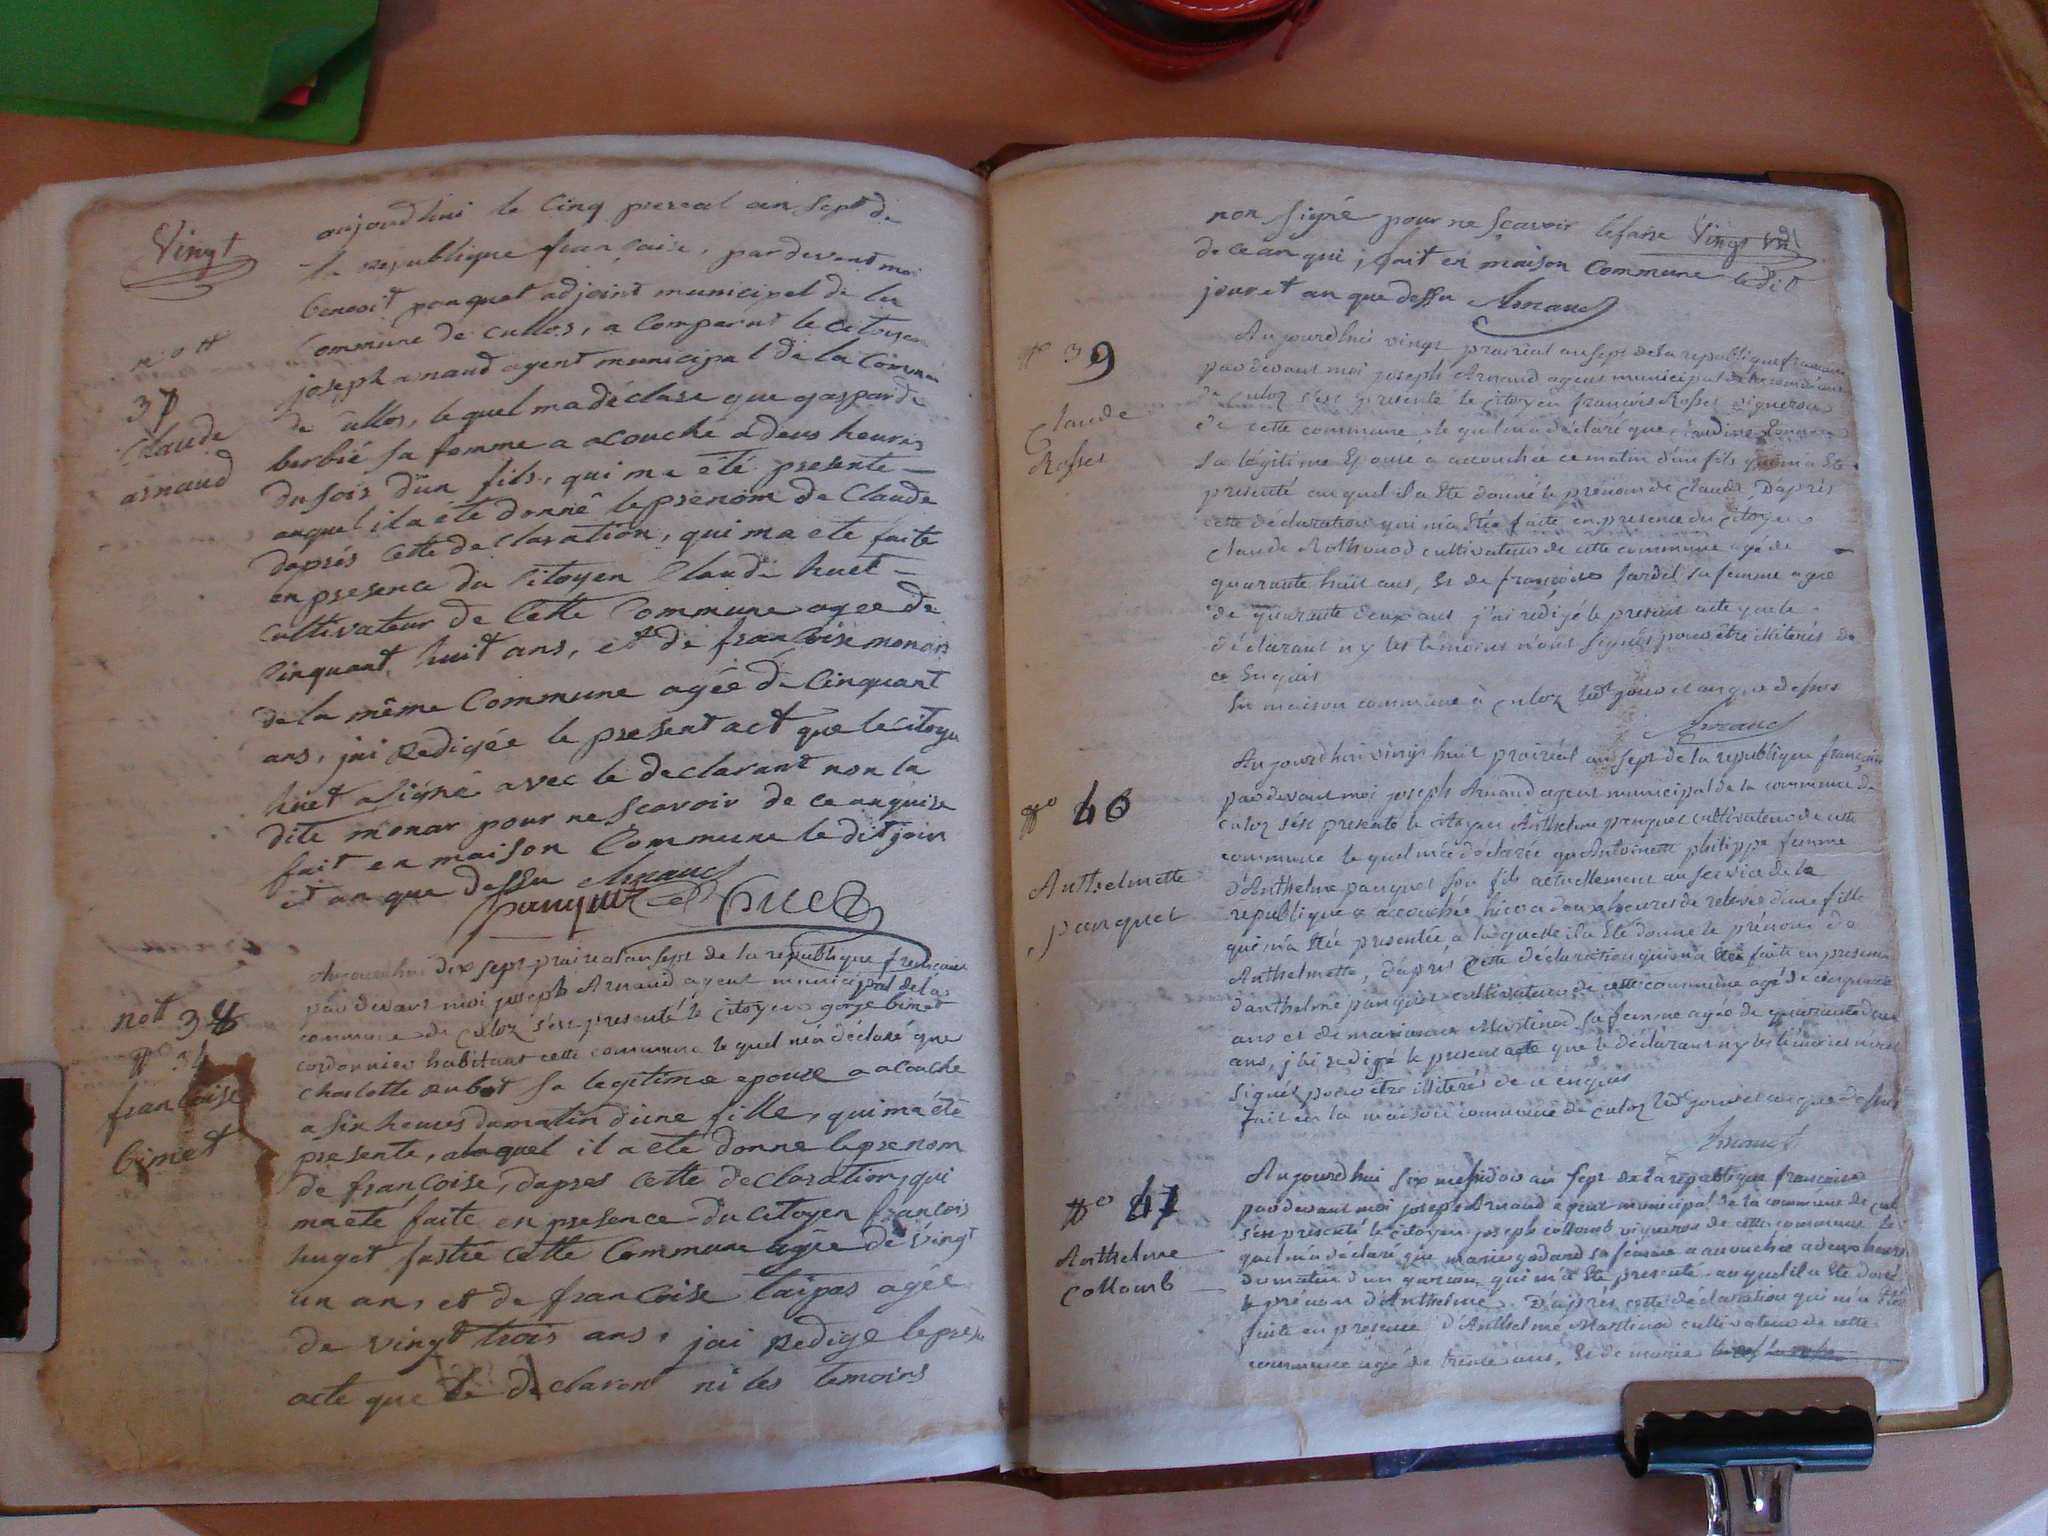 Vingt
aujourdhui le Cinq prereal an Sept de
la republique francaise, par devant moi
benoit panquet adjoint municipal de la
Commune de cullos, a Comparut le Citoyen
not
37
Claude
arnaud
joseph arnaud agent municipal de la Commu
de cullos, lequel ma déclare que gasparde
berbié sa femme a acouché a deus heures
du soir d'un fils, qui ma été presente
auquel il a été donné le prenom de Claude
daprés Cette declaration, qui ma ete faite
en presence du Citoyen Claude huet
cultivateur de Cette Commune agee de
Cinquant huit ans, et de francoise monar
de la même Commune agée de Cinquant
ans, jai redigée le present act que le citoyen
huet a signé avec le declarant non la
dite monar pour ne scavoir de ce anquise
fait en maison Commune le dit jour
et an que dessu Arnaud
panquet huet
not 38
francoise
bimet
Aujourdhui dix sept prairial an sept de la republique francaise
par devant moi joseph Arnaud agent municipal de la
commune de Culoz s'est presenté le citoyen gorge bimet
cordonnier habitant cette commune le quel m'a déclaré que
Charlotte sa legitime epouse a acouche
a six heures du matin d'une fille, qui ma été
presente, alaquel il a eté donne le prenom
de francoise, dapres cette declaration, qui
ma eté faite en presence du Citoyen francois
huget cette Commune agée de vingt
un ans, et de francoise taipas agée
de vingt trois ans, jai redige le prese
acte que le declarent ni les temoins
non signé pour ne scavoir le faire Vingt un
de ce an qui, fait en maison Commune le dit
jour et an que dessu Arnaud
No 39
Claude
Rosset
Aujourdhui vingt prairial an sept de la republique francaise
par devant moi joseph Arnaud agent municipal de la commune
de Culoz s'est presenté le citoyen francois Rosset vigneron
de cette commune, le quel m'a déclaré que Claudine
sa légitime Epouse a accouchée ce matin d'un fils qui m'a Eté
presenté auquel il a Eté donné le prénom de Claude, D'après
cette déclaration qui m'a Etée faite en presence du Citoyen
Claude Rothonod cultivateur de cette commune agé de
quarante huit ans, Et de françoise Jardil sa femme agée
de quarante deux ans j'ai redigé le present acte que le
déclarant n'y les témoins n'ont signés pour être illiterés de
ce Enquis
En maison commune à Culoz led. jour et an que dessus
Arnaud
No 40
Anthelmette
panquet
Aujourdhui vingt huit prairial an sept de la republique francaise
par devant moi joseph Arnaud agent municipal de la commune de
Culoz s'est presenté le citoyen Anthelme panquet cultivateur de cette
commune le quel m'a déclarée qu'Antoinette philippe femme
d'Anthelme panquet son fils actuellement au service de la
republique a accouchée hier a deux heures de relevée d'une fille
qui m'a Etée presentée, a laquelle il a Eté donné le prénom de
Anthelmette, d'après Cette déclaration qui m'a Etée faite en presence
d'anthelme panquet cultivateur de cette commune agé de cinquante
ans et de Martinod sa femme agée de quarante deux
ans, j'ai redigé le present acte que le déclarant n'y les témoins n'ont
signés pour être illiterés de ce enquis
fait en la maison commune de Culoz led. jour et an que dessus
Arnaud
No 41
Anthelme
Collomb
Aujourdhui six messidor an sept de la republique francaise
par devant moi joseph Arnaud agent municipal de la commune de Cul
s'est presenté le citoyen joseph collomb vigneron de cette commune le
quel m'a déclaré que marie godard sa femme a accouchée a deux heures
du matin d'un garcon, qui m'a Eté presenté auquel il a Eté donné
le prénom d'Anthelme. D'après cette déclaration qui m'a Etée
faite en presence d'Anthelme Martinod cultivateur de cette
commune agé de trente ans, Et de marie